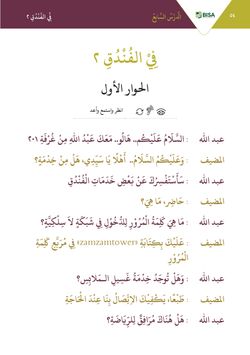 فِيْ الفُنْدُقِ ٢
الدَّرْسُ السَّابِعُ
BISA
٥٤
فِيْ الفُنْدُقِ ٢
الحوار الأول
انظر واستمع وأعد
عبد الله : السَّلَامُ عَلَيْكُم.. هَالُو.. مَعَكَ عَبْدُ اللهِ مِنْ غُرْفَةِ ٢٠١
المضيف : وَعَلَيْكُمُ السَّلَام.. أَهْلًا يَا سَيّدِي، هَلْ مِنْ خِدْمَةٍ؟
عبد الله : سَأَسْتَفْسِرُكَ عَنْ بَعْضِ خَدَمَاتِ الْفُنْدُقِ
المضيف : حَاضِر، مَا هِيَ؟
عبد الله : مَا هِيَ كَلِمَةُ الْمُرُوْرِ لِلدُّخُوْلِ فِي شَبَكَةٍ لَاسِلْكِيَّةٍ؟
المضيف : عَلَيْكَ بِكِتَابَةِ «zamzamtower» فِي مُرَبَّعِ كَلِمَةِ
الْمُرُوْرِ
عبد الله : وَهَلْ تُوجَدُ خِدْمَةُ غَسِيلِ الْمَلَابِسِ؟
المضيف : طَبْعًا، يَكْفِيْكَ الاِتِّصَالُ بِنَا عِنْدَ الْحَاجَةِ
عبد الله : هَلْ هُنَاكَ مَرَافِقُ لِلرِّيَاضَةِ؟